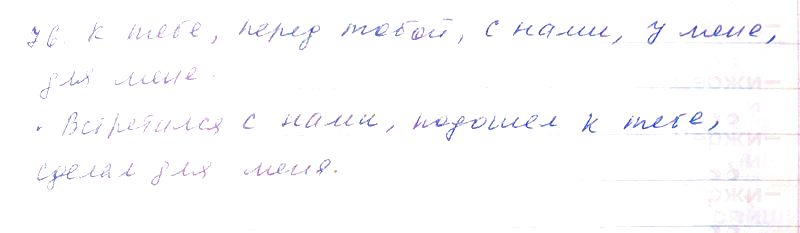 76. К тебе, перед тобой, с нами, у мене,
для мене.
. Встретился с нами, подошел к тебе,
сделал для меня.